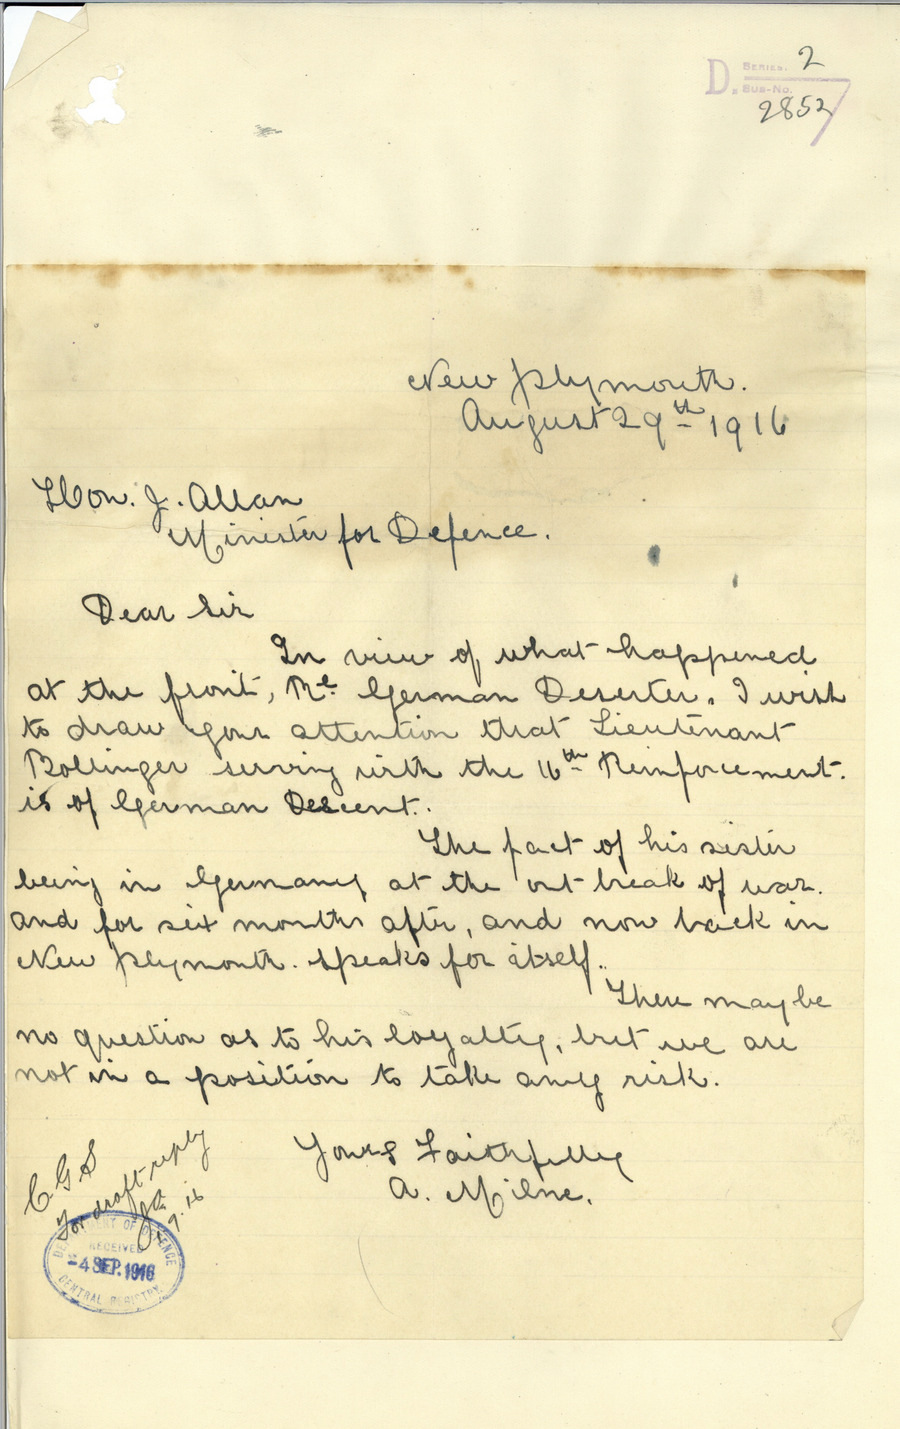 D. SERIES. 2
SUB-No.
2852
New Plymouth.
August 29th 1916
Hon. J. Allan
Minister for Defence.
Dear Sir
In view of what happened
at the front, Re. German Deserter. I wish
to draw your attention that Lieutenant
Bollinger serving with the 16th Reinforcement.
is of German Descent..
The fact of his sister
being in Germany, at the out break of war.
and for six months after, and now back in
New Plymouth. speaks for itself..
There may be
no question as to his loyalty, but we are
not in a position to take any risk.
Yours Faithfully
A. Milne.
CGS
For draft reply
9.16
DEPARTMENT OF DEFENCE
RECEIVED
-4 SEP. 1916
CENTRAL REGISTRY